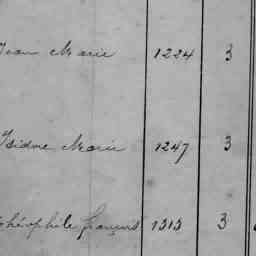 Jean Marie 1224 3
Isidore Marie 1247 3
Théophile François 1313 3